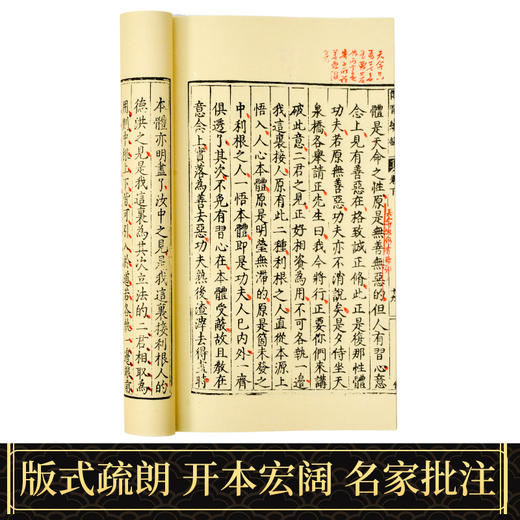 體是天命之性原是無善無惡的但人有習心意
念上見有善惡在格致誠正修此正是復那性體
功夫若原無善惡功夫亦不消說矣是夕侍坐天
泉橋各舉請正先生曰我今將行正要你們來講
破此意二君之見正好相資為用不可各執一邊
我這裏接人原有此二種利根之人直從本源上
悟入人心本體原是明瑩無滯的原是箇未發之
中利根之人一悟本體即是功夫人己內外一齊
俱透了其次不免有習心在本體受蔽故且教在
意念上實落為善去惡功夫熟後渣滓去得盡時
本體亦明盡了汝中之見是我這裏接利根人的
德洪之見是我這裏為其次立法的二君相取為
用則中人上下皆可引入於道若各執一邊眼前
版式疏朗 开本宏阔 名家批注